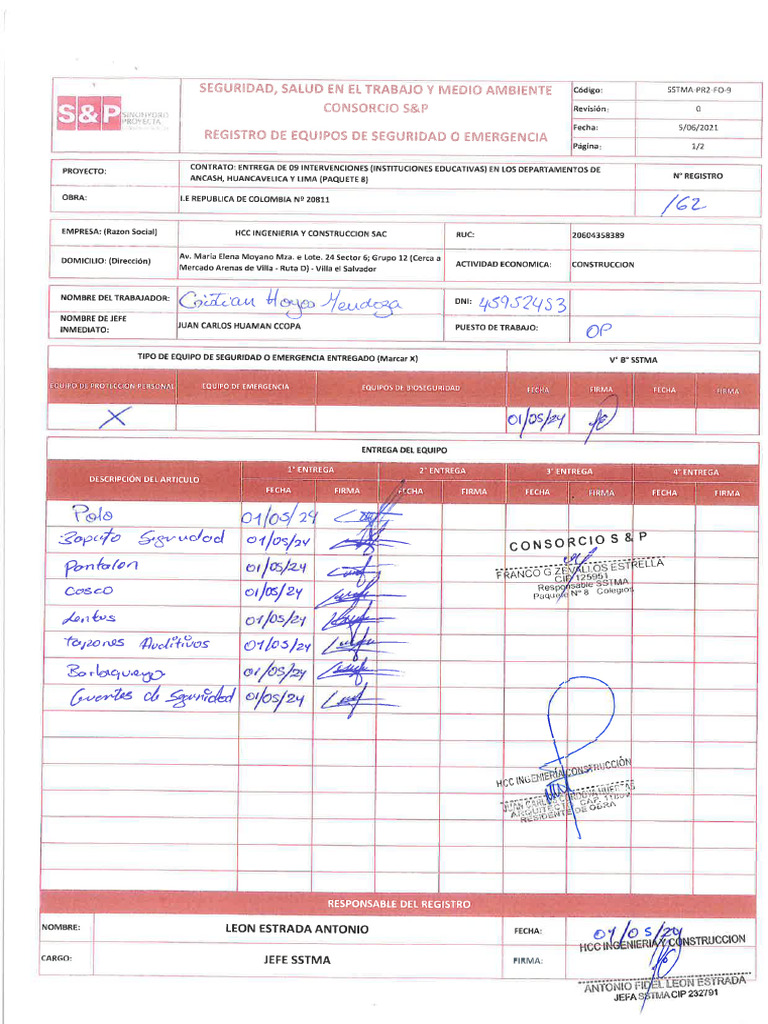 S&P
SINOHYDRO
PROYECTA
SEGURIDAD, SALUD EN EL TRABAJO Y MEDIO AMBIENTE
CONSORCIO S&P
REGISTRO DE EQUIPOS DE SEGURIDAD O EMERGENCIA
Código: SSTMA-PR2-FO-9
Revisión: 0
Fecha: 5/06/2021
Página: 1/2
PROYECTO: CONTRATO: ENTREGA DE 09 INTERVENCIONES (INSTITUCIONES EDUCATIVAS) EN LOS DEPARTAMENTOS DE
ANCASH, HUANCAVELICA Y LIMA (PAQUETE 8)
N° REGISTRO
OBRA: I.E REPUBLICA DE COLOMBIA Nº 20811
162
EMPRESA: (Razon Social) HCC INGENIERIA Y CONSTRUCCION SAC RUC: 20604358389
DOMICILIO: (Dirección) Av. Maria Elena Moyano Mza. e Lote. 24 Sector 6; Grupo 12 (Cerca a
Mercado Arenas de Villa - Ruta D) - Villa el Salvador
ACTIVIDAD ECONOMICA: CONSTRUCCION
NOMBRE DEL TRABAJADOR: Cristian Hoyos Mendoza DNI: 45952453
NOMBRE DE JEFE
INMEDIATO: JUAN CARLOS HUAMAN CCOPA PUESTO DE TRABAJO: OP
TIPO DE EQUIPO DE SEGURIDAD O EMERGENCIA ENTREGADO (Marcar X) V° B° SSTMA
EQUIPO DE PROTECCION PERSONAL EQUIPO DE EMERGENCIA EQUIPOS DE BIOSEGURIDAD FECHA FIRMA FECHA FIRMA
X 01/05/24
ENTREGA DEL EQUIPO
DESCRIPCIÓN DEL ARTICULO 1° ENTREGA 2° ENTREGA 3° ENTREGA 4° ENTREGA
FECHA FIRMA FECHA FIRMA FECHA FIRMA FECHA FIRMA
Polo 01/05/24
Zapato Seguridad 01/05/24
Pantalon 01/05/24
Casco 01/05/24
Lentes 01/05/24
Tapones Auditivos 01/05/24
Barbaquejo 01/05/24
Guantes de Seguridad 01/05/24
CONSORCIO S & P
FRANCO G ZEVALLOS ESTRELLA
CIP 125951
Responsable SSTMA
Paquete N° 8 Colegios
HCC INGENIERÍA CONSTRUCCIÓN
JUAN CARLOS
ARQUITECTO CAP.
RESIDENTE DE OBRA
RESPONSABLE DEL REGISTRO
NOMBRE: LEON ESTRADA ANTONIO FECHA: 01/05/24
HCC INGENIERIA Y CONSTRUCCION
CARGO: JEFE SSTMA FIRMA:
ANTONIO FIDEL LEON ESTRADA
JEFA SSTMA CIP 232791